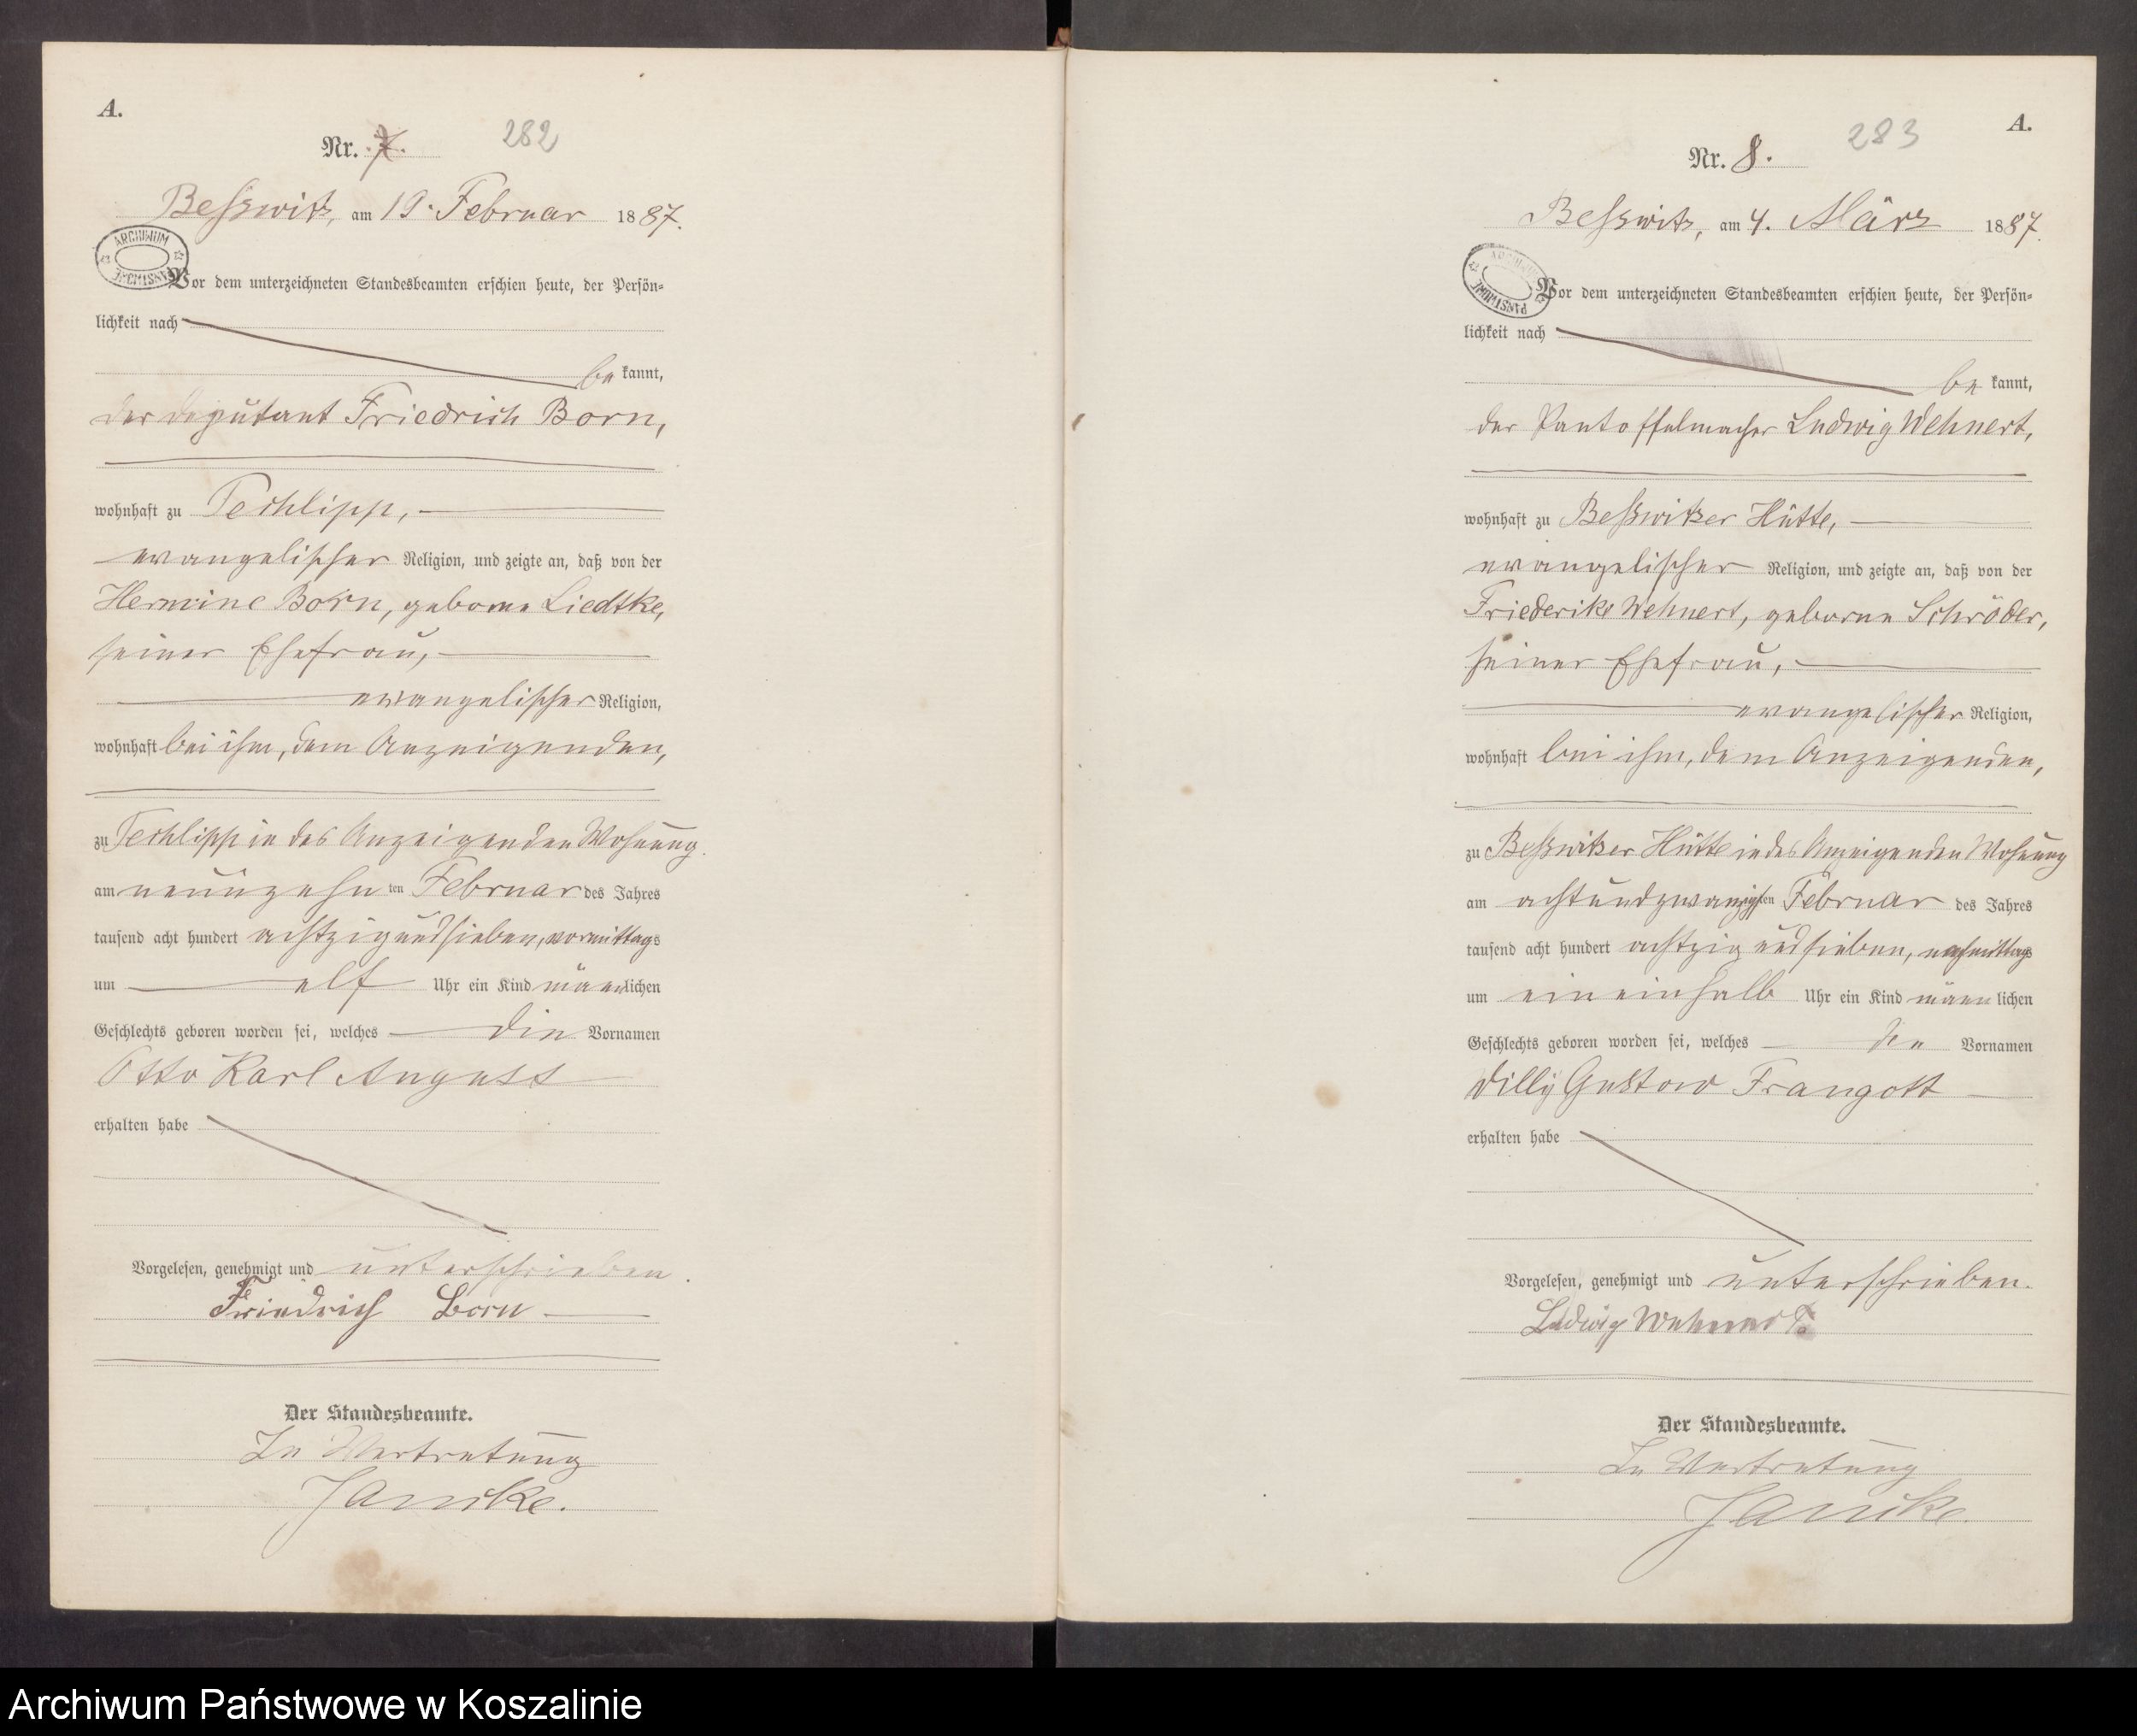 A.
Nr. 7.
282
Beßwitz, am 19. Februar 1887.
ARCHIWUM PAŃSTWOWE
Vor dem unterzeichneten Standesbeamten erschien heute, der Persön-
lichkeit nach
be kannt,
der Deputant Friedrich Born,
wohnhaft zu Techlipp,
evangelischer Religion, und zeigte an, daß von der
Hermine Born, geborne Liedtke,
seiner Ehefrau,
evangelischer Religion,
wohnhaft bei ihm, dem Anzeigenden,
zu Techlipp in des Anzeigenden Wohnung
am neunzehn ten Februar des Jahres
tausend acht hundert achtzig und sieben, vormittags
um elf Uhr ein Kind männlichen
Geschlechts geboren worden sei, welches die Vornamen
Otto Karl August
erhalten habe
Vorgelesen, genehmigt und unterschrieben.
Friedrich Born
Der Standesbeamte.
In Vertretung
Jancke.
A.
Nr. 8.
283
Beßwitz, am 4. März 1887.
ARCHIWUM PAŃSTWOWE
Vor dem unterzeichneten Standesbeamten erschien heute, der Persön-
lichkeit nach
be kannt,
der Pantoffelmacher Ludwig Wehnert,
wohnhaft zu Beßwitzer Hütte,
evangelischer Religion, und zeigte an, daß von der
Friederike Wehnert, geborne Schröder,
seiner Ehefrau,
evangelischer Religion,
wohnhaft bei ihm, dem Anzeigenden,
zu Beßwitzer Hütte in des Anzeigenden Wohnung
am achtundzwanzigsten Februar des Jahres
tausend acht hundert achtzig und sieben, nachmittags
um ein einhalb Uhr ein Kind männlichen
Geschlechts geboren worden sei, welches Vornamen
Willy Gustav Traugott
erhalten habe
Vorgelesen, genehmigt und unterschrieben.
Ludwig Wehnert
Der Standesbeamte.
In Vertretung
Jancke.
Archiwum Państwowe w Koszalinie